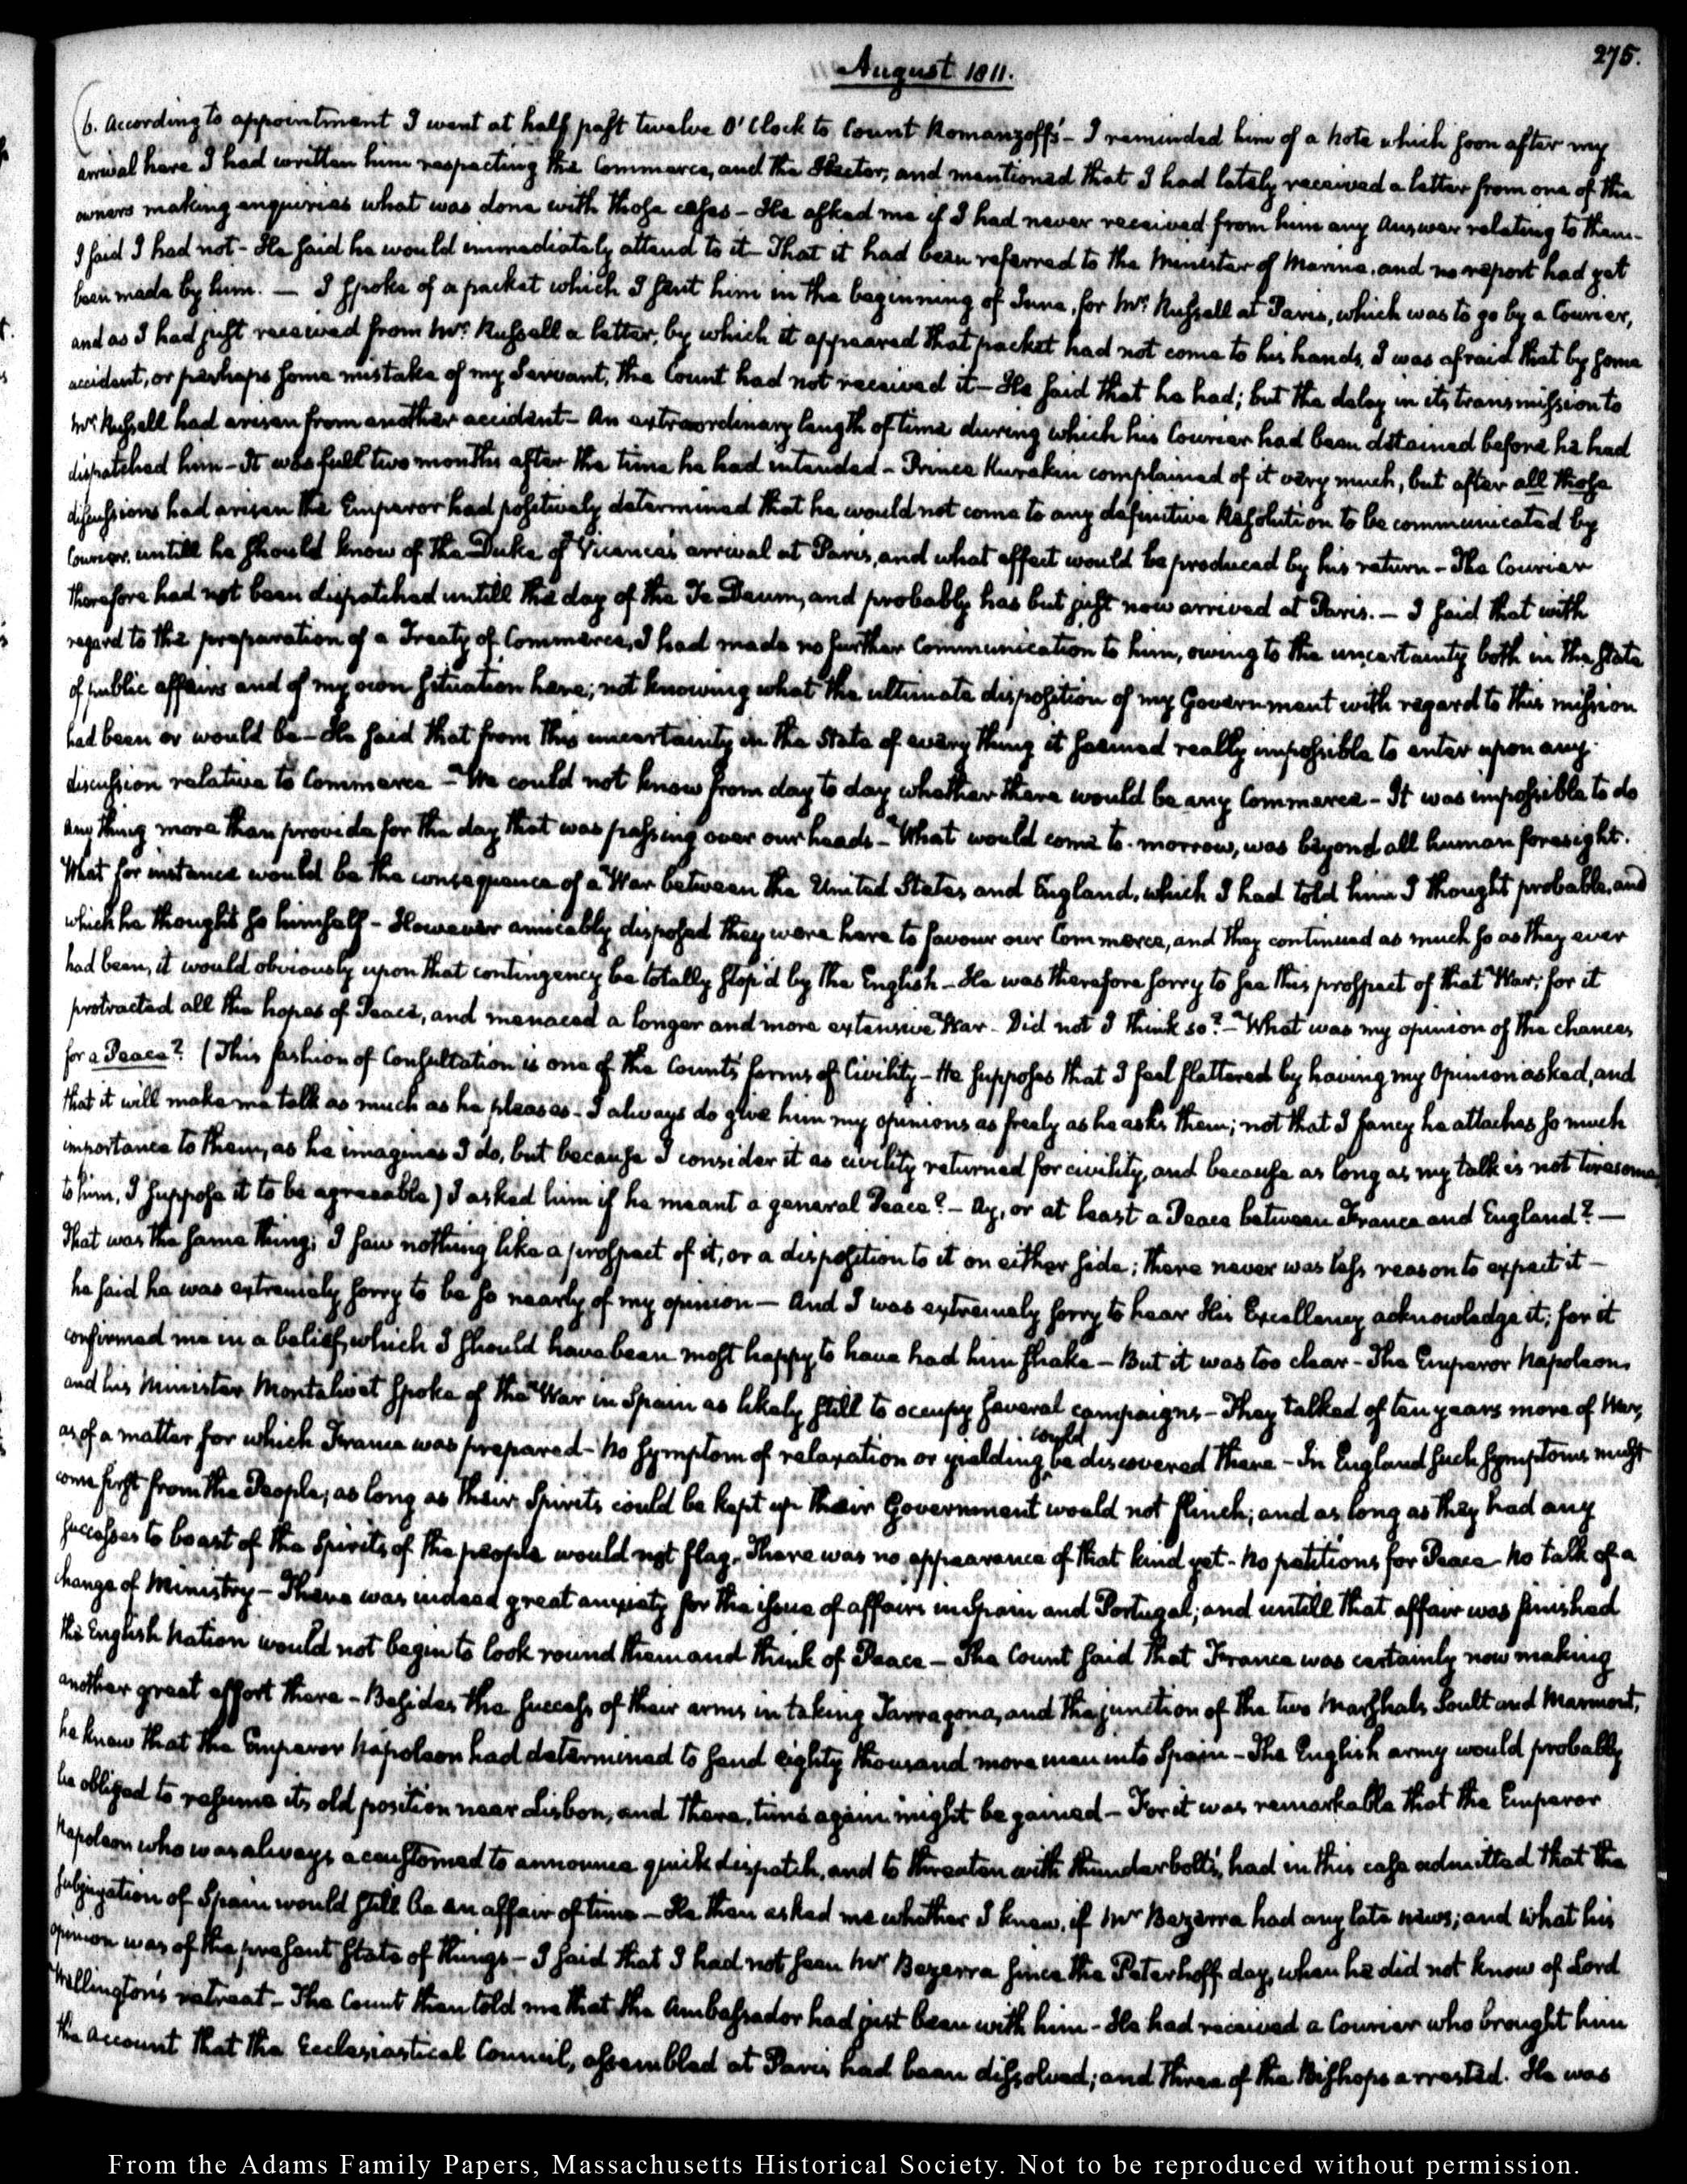 275.
August 1811.
6. According to appointment I went at half past twelve O'Clock to Count Romanzoff's – I reminded him of a Note which soon after my
arrival here I had written him respecting the Commerce, and the Hector, and mentioned that I had lately received a letter from one of the
owners making enquiries what was done with those cases – He asked me if I had never received from him any Answer relating to them –
I said I had not – He said he would immediately attend to it – That it had been referred to the Minister of Marine, and no report had yet
been made by him. — I spoke of a packet which I sent him in the beginning of June, for Mr. Russell at Paris, which was to go by a Courier,
and as I had just received from Mr. Russell a letter, by which it appeared that packet had not come to his hands, I was afraid that by some
accident, or perhaps some mistake of my Servant, the Count had not received it – He said that he had; but the delay in its transmission to
Mr. Russell had arisen from another accident – An extraordinary length of time during which his Courier had been detained before he had
dispatched him – It was full two months after the time he had intended – Prince Kurakin complained of it very much, but after all those
discussions had arisen the Emperor had positively determined that he would not come to any definitive Resolution to be communicated by
Courier, untill he should know of the Duke of Vicence's arrival at Paris, and what effect would be produced by his return – The Courier
therefore had not been dispatched untill the day of the Te Deum, and probably has but just now arrived at Paris. — I said that with
regard to the preparation of a Treaty of Commerce, I had made no further Communication to him, owing to the uncertainty both in the state
of public affairs and of my own situation here; not knowing what the ultimate disposition of my Government with regard to this mission
had been or would be – He said that from this uncertainty in the State of every thing it seemed really impossible to enter upon any
discussion relative to Commerce – We could not know from day to day whether there would be any Commerce – It was impossible to do
any thing more than provide for the day that was passing over our heads – What would come to-morrow, was beyond all human foresight.
What for instance would be the consequence of a War between the United States and England, which I had told him I thought probable, and
which he thought so himself – However amicably disposed they were here to favour our Commerce, and they continued as much so as they ever
had been, it would obviously upon that contingency be totally stop'd by the English – He was therefore sorry to see this prospect of that War; for it
protracted all the hopes of Peace, and menaced a longer and more extensive War – Did not I think so? – What was my opinion of the chances
for a Peace? (This fashion of Consultation is one of the Count's forms of Civility – He supposes that I feel flattered by having my Opinion asked, and
that it will make me talk as much as he pleases – I always do give him my opinions as freely as he asks them; not that I fancy he attaches so much
importance to them, as he imagines I do, but because I consider it as civility returned for civility, and because as long as my talk is not tiresome
to him, I suppose it to be agreeable) I asked him if he meant a general Peace? – Ay, or at least a Peace between France and England? —
That was the same thing; I saw nothing like a prospect of it, or a disposition to it on either side; there never was less reason to expect it –
he said he was extremely sorry to be so nearly of my opinion — And I was extremely sorry to hear His Excellency acknowledge it; for it
confirmed me in a belief, which I should have been most happy to have had him shake – But it was too clear – The Emperor Napoleon
and his Minister Montalivet spoke of the War in Spain as likely still to occupy several campaigns – They talked of ten years more of War,
as of a matter for which France was prepared – No symptom of relaxation or yielding could be discovered there – In England such symptoms must
come first from the People; as long as their Spirits could be kept up their Government would not flinch; and as long as they had any
successes to boast of the Spirits of the people would not flag. There was no appearance of that kind yet – No petitions for Peace – No talk of a
change of Ministry – There was indeed great anxiety for the issue of affairs in Spain and Portugal; and untill that affair was finished
the English Nation would not begin to look round them and think of Peace – The Count said that France was certainly now making
another great effort there – Besides the success of their arms in taking Tarragona, and the junction of the two Marshals Soult and Marmont,
he knew that the Emperor Napoleon had determined to send eighty thousand more men into Spain – The English army would probably
be obliged to resume its old position near Lisbon, and there, time again might be gained – For it was remarkable that the Emperor
Napoleon who was always accustomed to announce quick dispatch, and to threaten with thunderbolts, had in this case admitted that the
subjugation of Spain would still be an affair of time – He then asked me whether I knew, if Mr Bezerra had any late news; and what his
opinion was of the present state of things – I said that I had not seen Mr Bezerra since the Peterhoff day, when he did not know of Lord
Wellington's retreat – The Count then told me that the Ambassador had just been with him – He had received a Courier who brought him
the account that the Ecclesiastical Council, assembled at Paris had been dissolved; and three of the Bishops arrested. He was
From the Adams Family Papers, Massachusetts Historical Society. Not to be reproduced without permission.